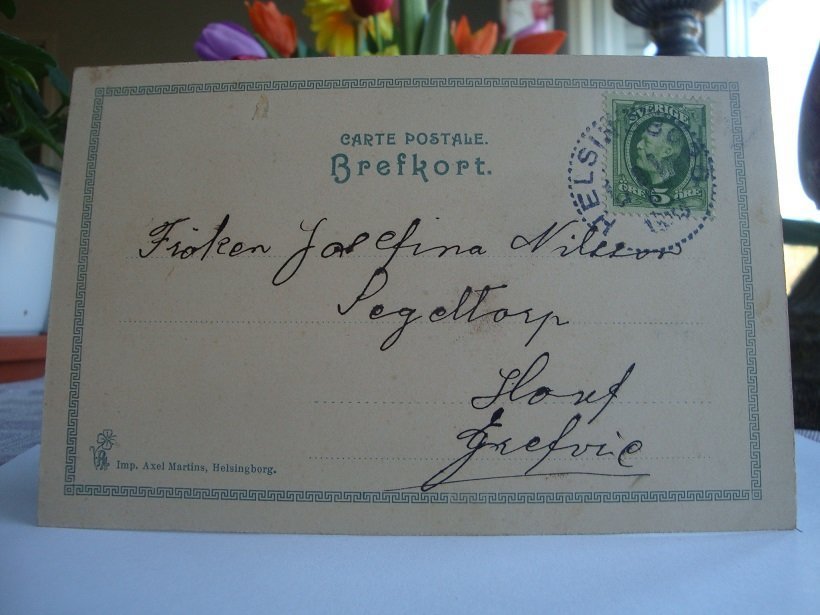 CARTE POSTALE.
Brefkort.
SVERIGE
ÖRE 5 ÖRE
HELSIN
Fröken Josefina Nilsson
Segeltorp
Imp. Axel Martins, Helsingborg.